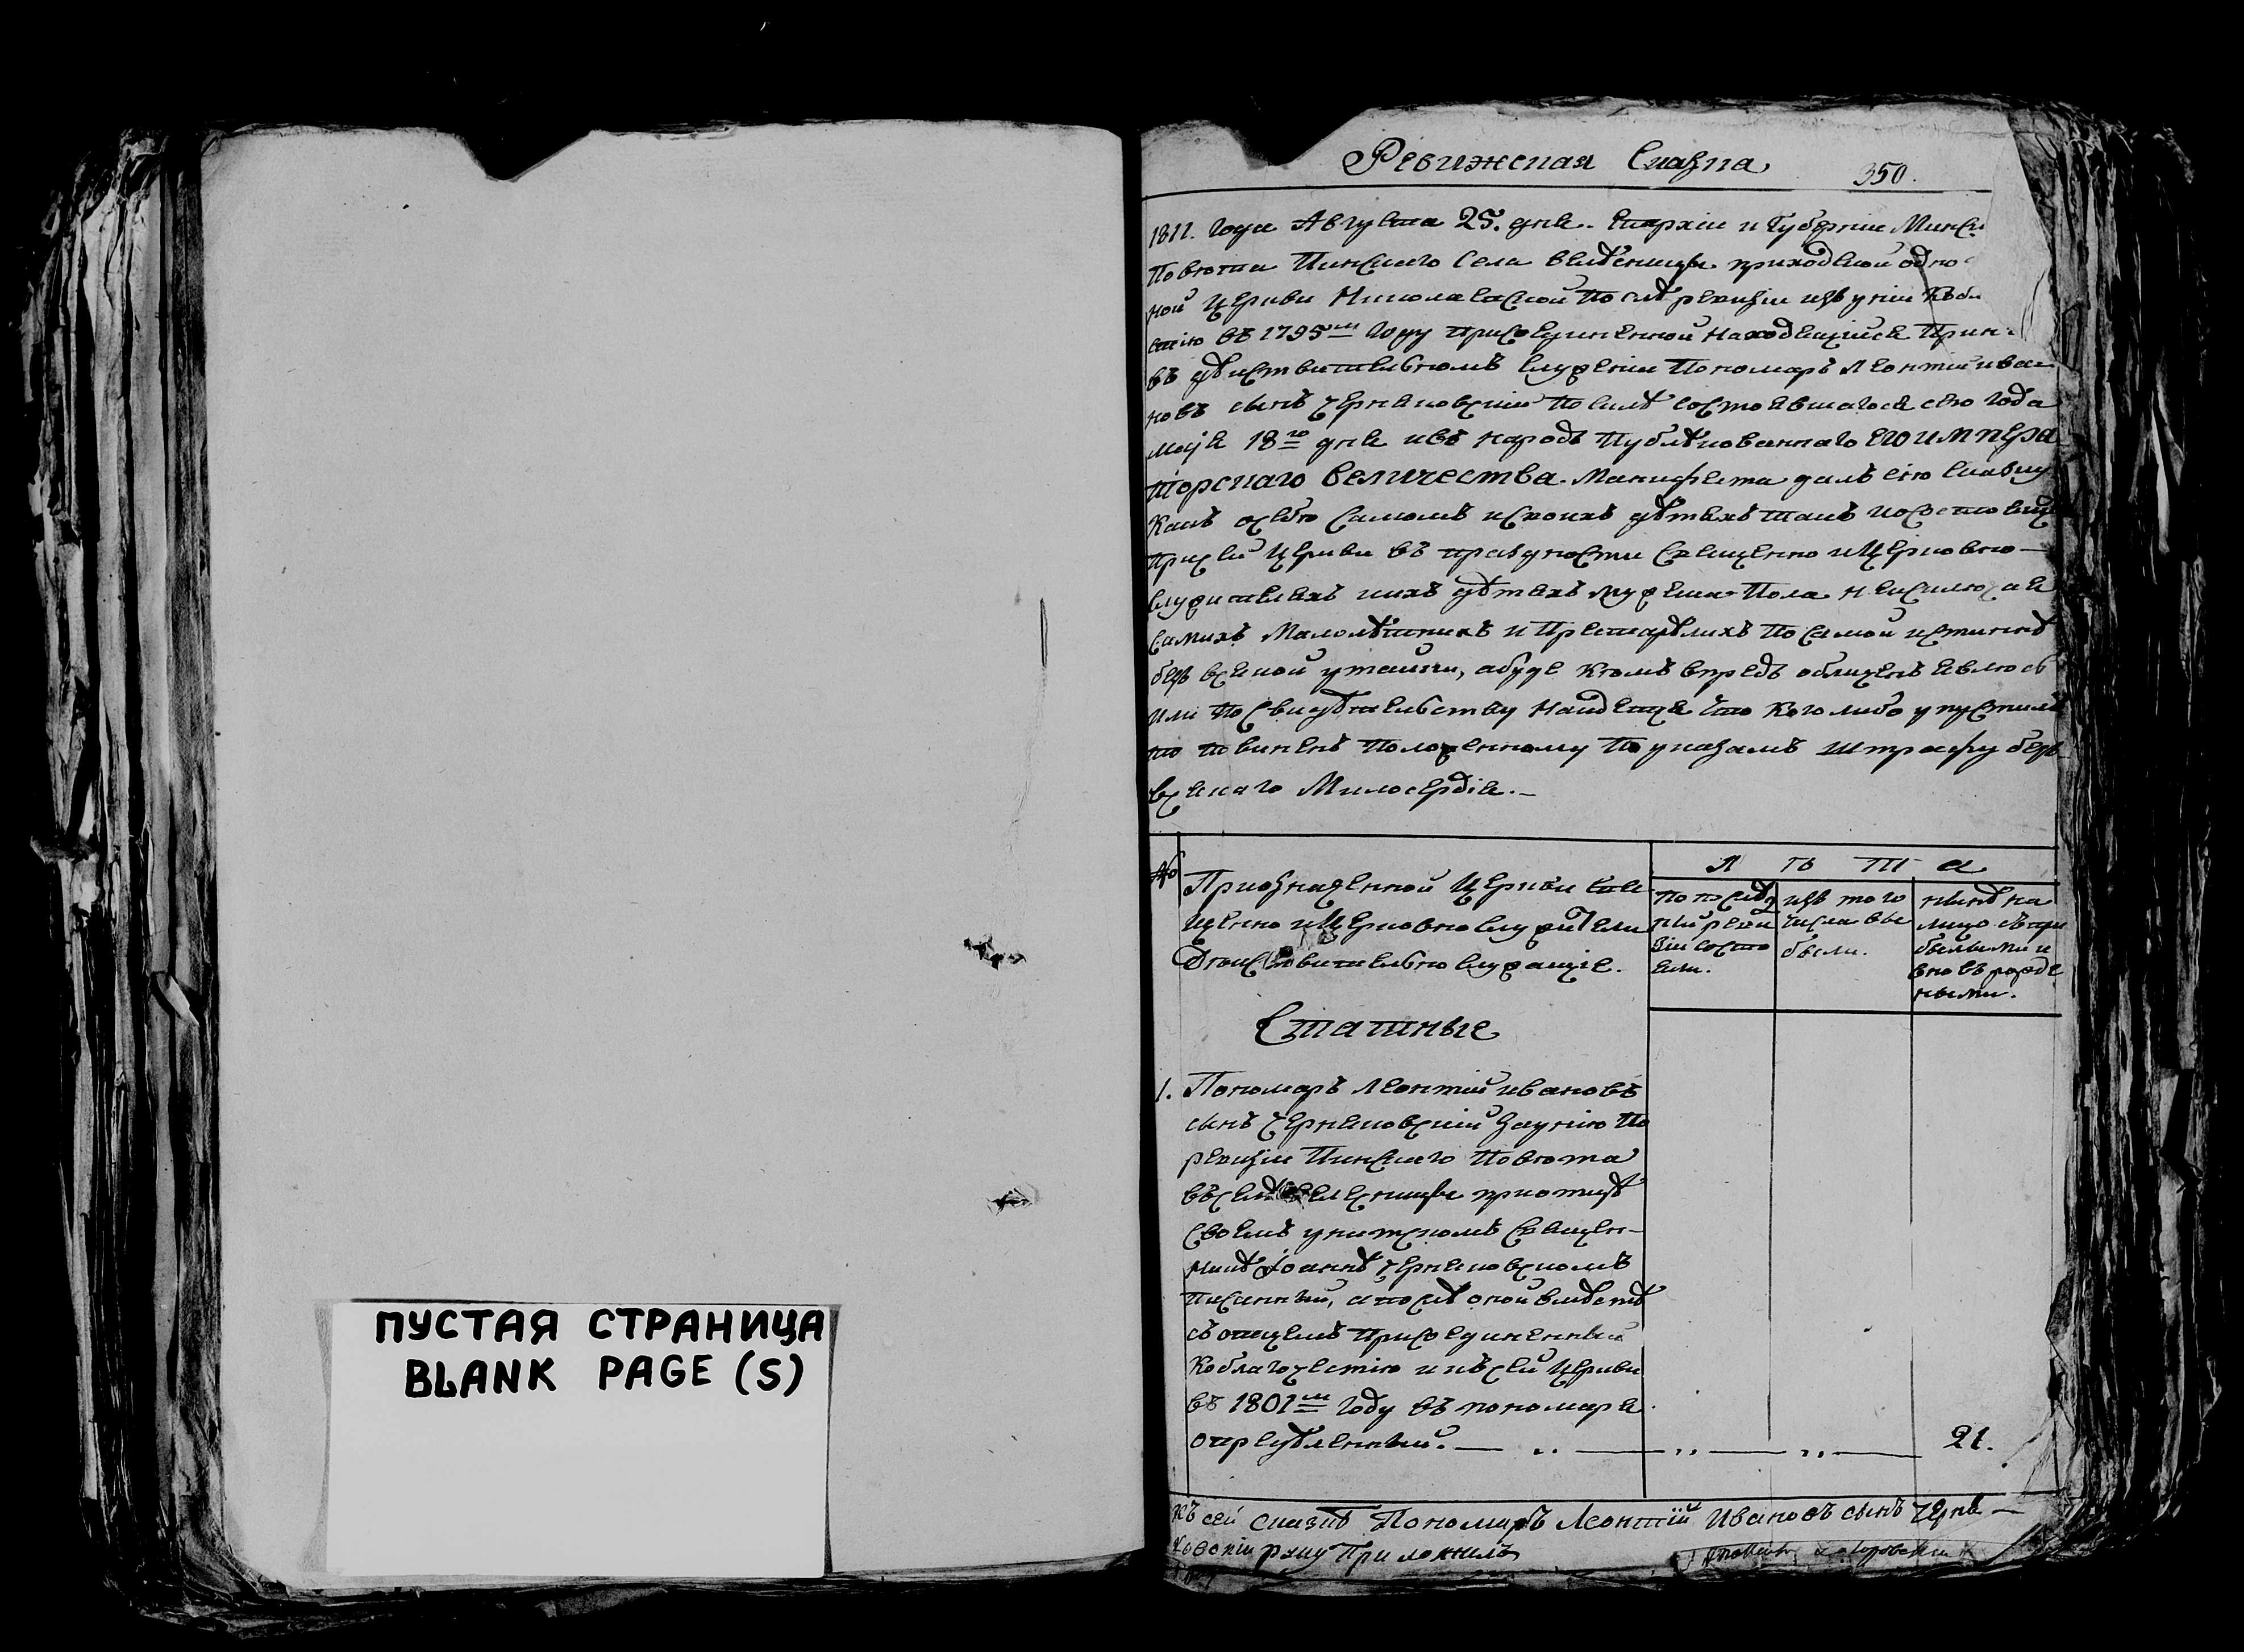 ПУСТАЯ СТРАНИЦА
BLANK PAGE (S)
Ревижская Сказка
350.
1811. Года Августа 25. дня. Епархiи и Губернiи Минс
Повѣта Пинскаго Села приходской одно
ной Церкви Николаевской по слѣ ревизiи изъ унiи къ бл
стiю въ 1795м Году присоединенной находящiйся При
въ дѣиствительномъ служенiи Пономарь Леонтiи ива
новъ сынъ Черняковскiи по силѣ состоявшагося сего года
маiя 18го дня и въ народъ публѣкованнаго ЕГО ИМПЕРА
торскаго Величества. Манифеста далъ сiю сказку
какъ о себю самомъ и своихъ дѣтяхъ такъ и о состоящ
при сей Церкви въ празности Священно и Церковно
служителяхъ и ихъ дѣтяхъ мужеска пола не исключая
самихъ малолѣтнихъ и престарѣлихъ по самой истиннѣ
безъ всякой утайки, а буде кѣмъ впредь обличенъ явлюсь
или по свидѣтельству найдется что кого либо упустилъ
то повиненъ положенному по указамъ штрафу безъ
всякаго Милосердiя.
№
При означенной Церкви Свя
щенно и Церковно служители
Дѣиствительно служащiе.
Л ѣ т а
по послѣд
ней реви
зiи состо
яли.
изъ того
числа вы
были.
нынѣ на
лицо съ при
былыми и
вновь рожде
ными.
Статные
1. Пономарь Леонтiй ивановъ
сынъ Черняковскiй за унiю по
ревизiи Пинскаго Повѣта
въ селѣ при отцѣ
своемъ унитскомъ Священ-
никѣ Iоаннѣ Черняковскомъ
писанный, а послѣ оной вмѣстѣ
съ отцемъ присоединенный
ко благочестiю и къ сей Церкви
въ 1801м Году въ пономаря
опредѣленный. 21.
Къ сей сказкѣ Пономарь Леонтiй Ивановъ сынъ Черне
ковскiи руку приложилъ